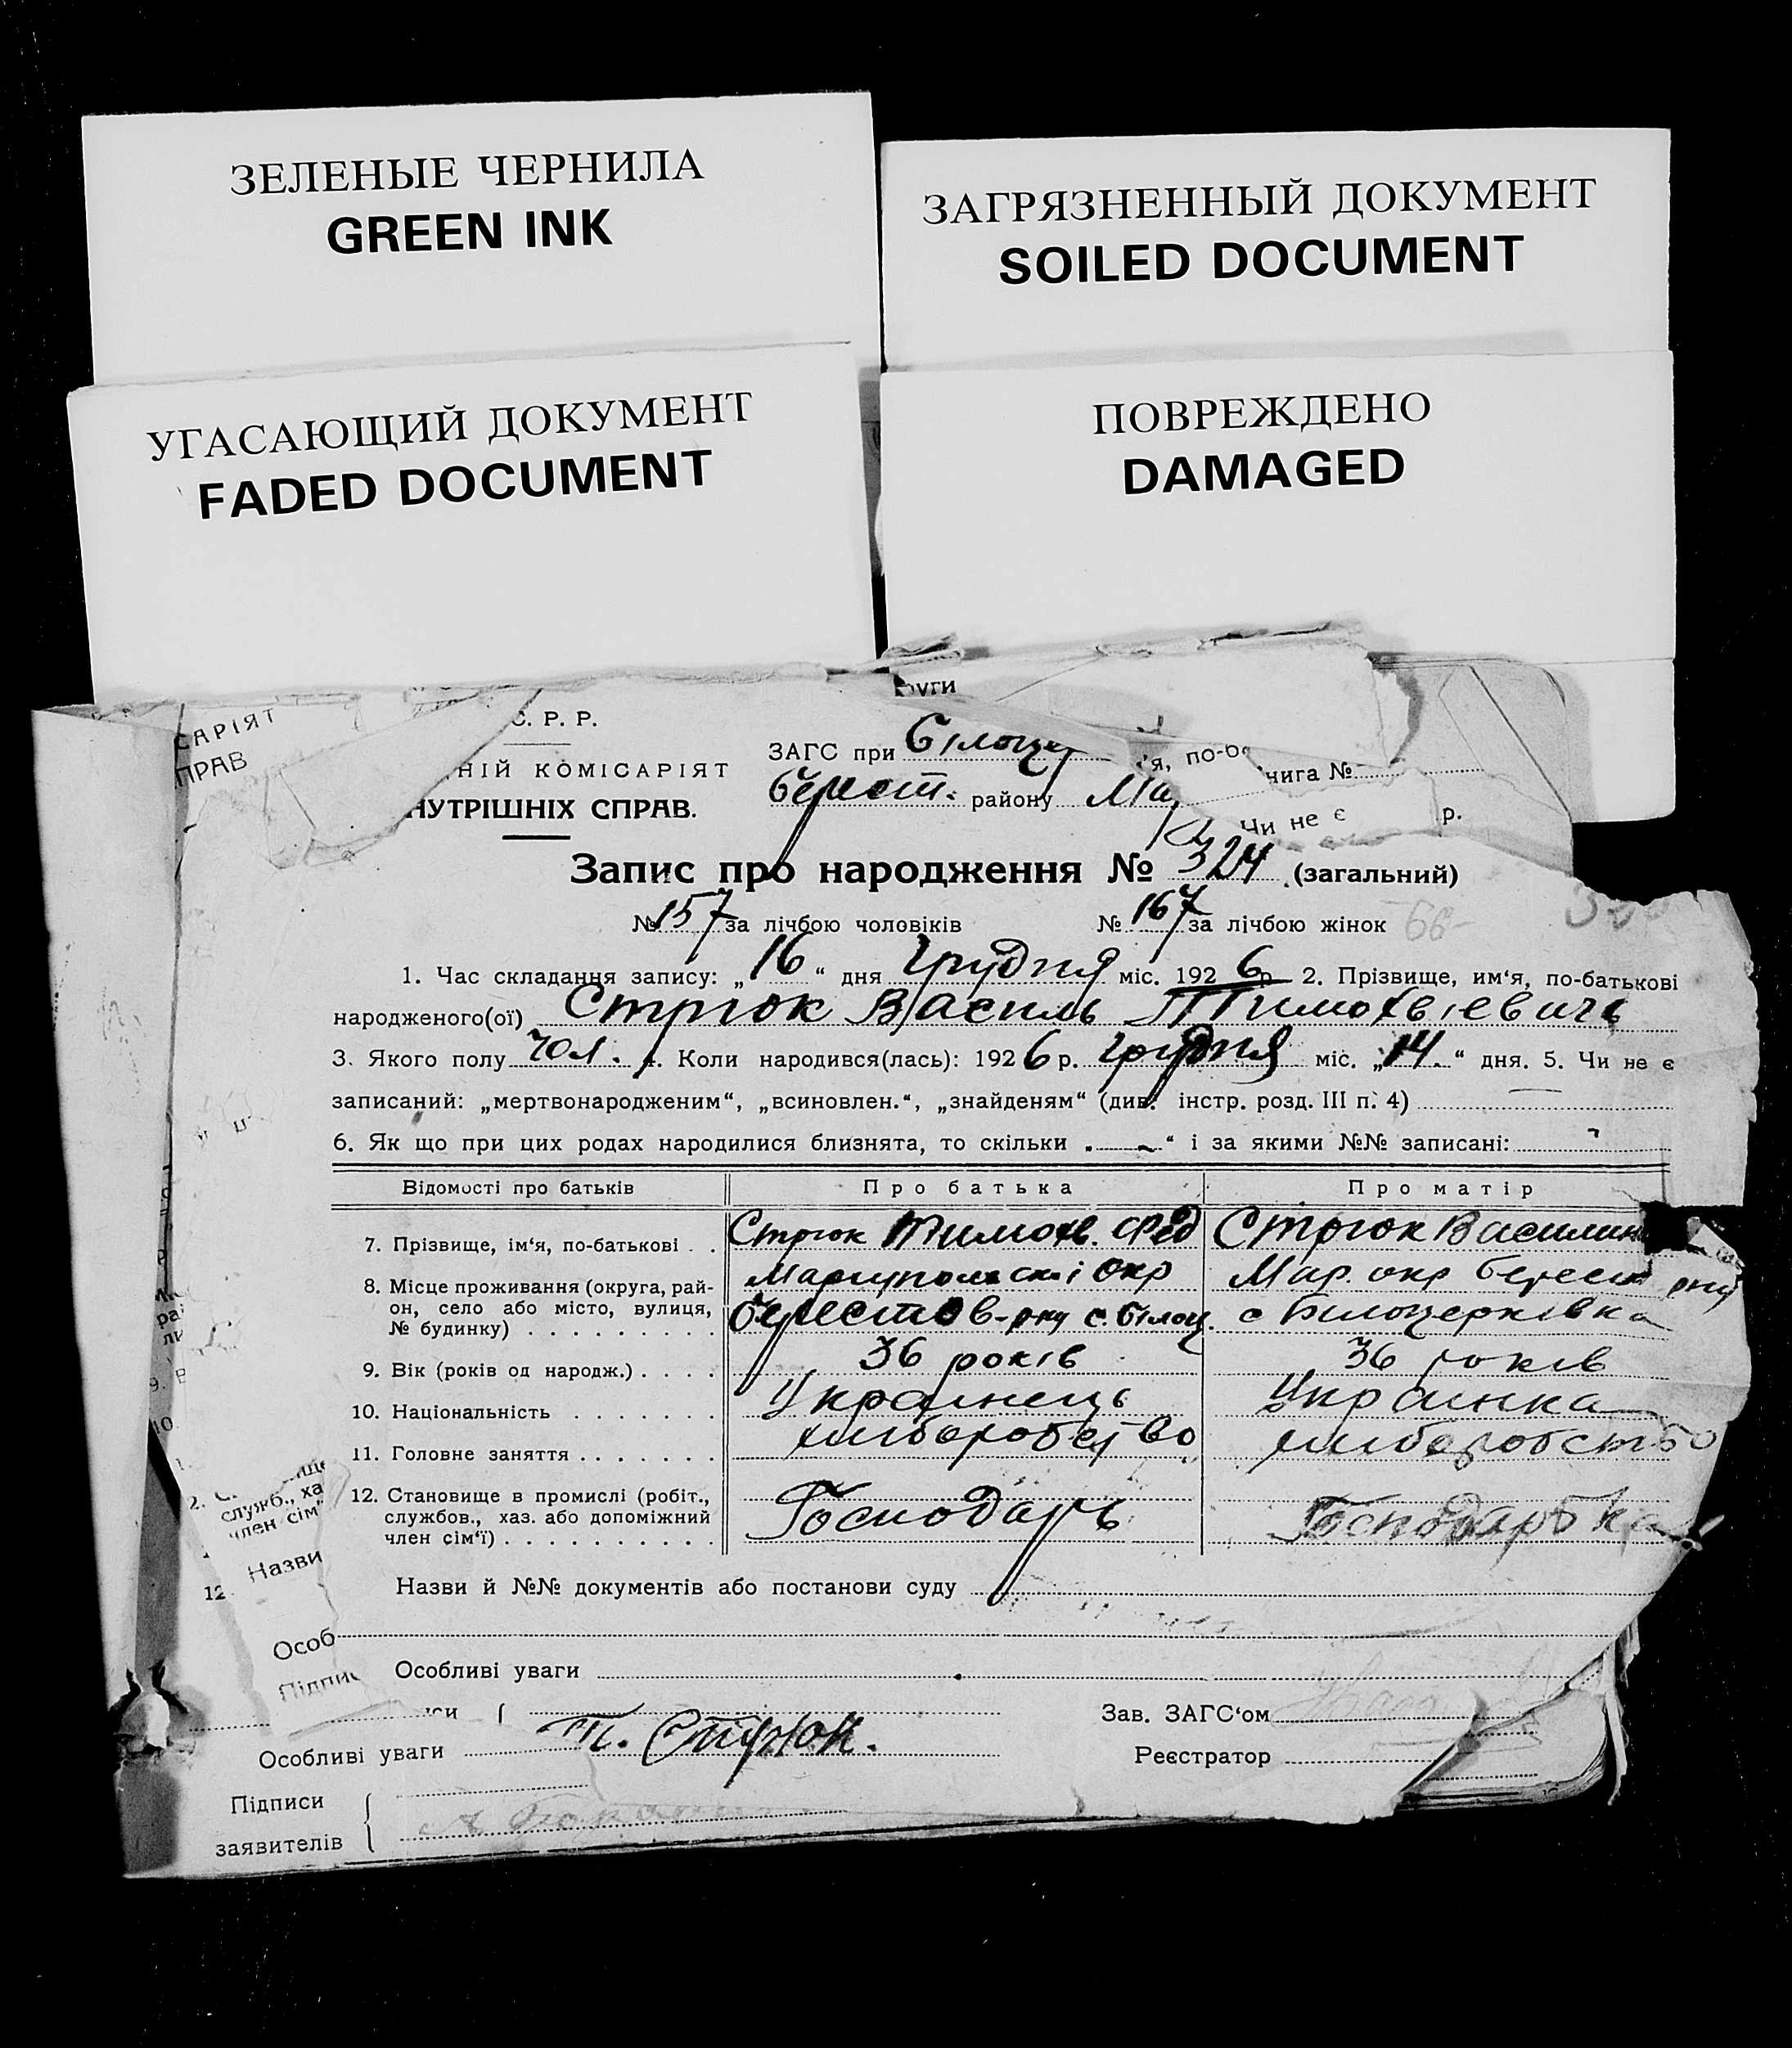 ЗЕЛЕНЫЕ ЧЕРНИЛА
GREEN INK
ЗАГРЯЗНЕННЫЙ ДОКУМЕНТ
SOILED DOCUMENT
УГАСАЮЩИЙ ДОКУМЕНТ
FADED DOCUMENT
ПОВРЕЖДЕНО
DAMAGED
руги
САРІЯТ
ПРАВ
С. Р. Р.
НІЙ КОМІСАРІЯТ
НУТРІШНІХ СПРАВ.
ЗАГС при Білоце
Берест. району Ма
я, по-ба
нига №
Чи не є р.
Запис про народження № 324 (загальний)
№ 157 за лічбою чоловіків № 167 за лічбою жінок
1. Час складання запису: „16“ дня грудня міс. 1926 р. 2. Прізвище, им‘я, по-батькові
народженого(ої) Стрюк Василь Тимохвієвичь
3. Якого полу чол. 4. Коли народився(лась): 1926 р. грудня міс. „14.“ дня. 5. Чи не є
записаний: „мертвонародженим“, „всиновлен.“, „знайденям“ (див. інстр. розд. III п. 4)
6. Як що при цих родах народилися близнята, то скільки „—“ і за якими №№ записані:
Відомості про батьків Про батька Про матір
7. Прізвище, ім‘я, по-батькові . . Стрюк Тимохв. Фед Стрюк Василин
8. Місце проживання (округа, рай- Маріупольскі Окр Мар. окр берест рну
он, село або місто, вулиця, Берестов-рну с. Білоц. с Білоцерківка
№ будинку) . . . . . . . . .
9. Вік (років од народж.) . . . . 36 років 36 років
10. Національність . . . . . . . Украинець Украинка
11. Головне заняття . . . . . . . хлиборобство хлиборобство
12. Становище в промислі (робіт.,
службов., хаз. або допоміжний Господарь Господарька
член сім‘ї) . . . . . . . . . .
служб., ха
член сім‘
Назви
12
Назви й №№ документів або постанови суду
Особ
Підпис
Особливі уваги
си
Т. Стрюк.
Зав. ЗАГС‘ом
Особливі уваги
Реєстратор
Підписи
заявителів